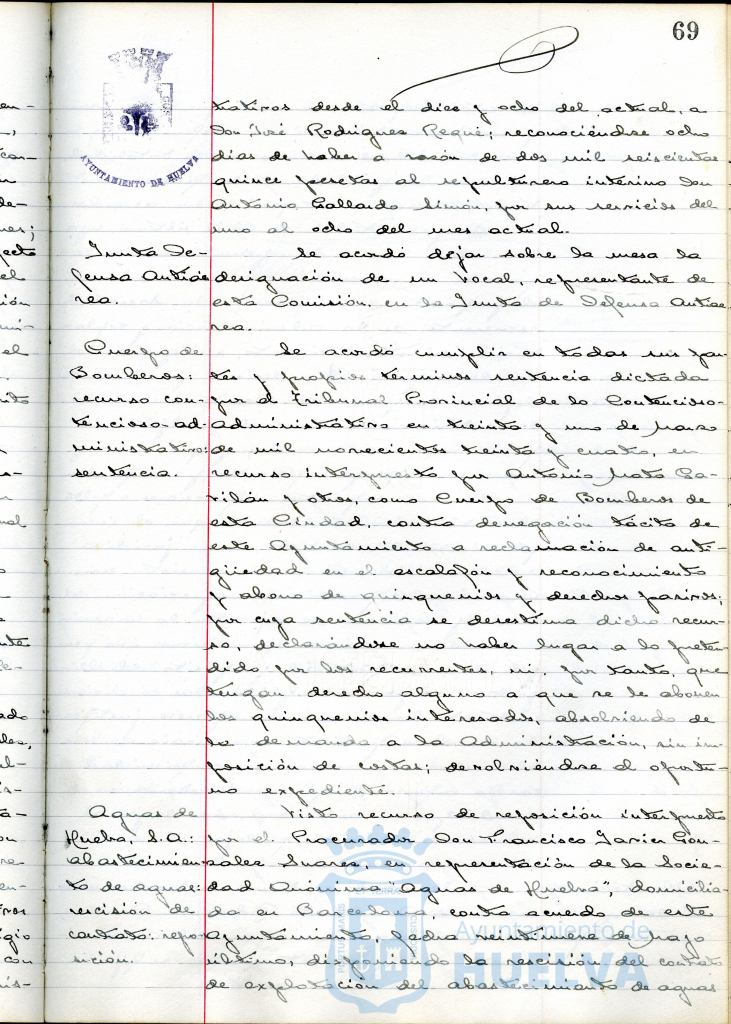 69
AYUNTAMIENTO DE HUELVA
trativos desde el diez y ocho del actual, a
Don José Rodríguez Requé; reconociéndose ocho
días de haber a razón de dos mil seiscientas
quince pesetas al sepulturero interino Don
Antonio Gallardo Simón, por sus servicios del
uno al ocho del mes actual.
Junta De-
fensa Antiaé-
rea.
Se acordó dejar sobre la mesa la
designación de un Vocal, representante de
esta Comisión, en la Junta de Defensa Antiaé
rea.
Cuerpo de
Bomberos:
recurso con-
tencioso-ad-
ministrativo:
sentencia.
Se acordó cumplir en todas sus par-
tes y propios términos sentencia dictada
por el Tribunal Provincial de lo Contencioso-
administrativo en treinta y uno de Marzo
de mil novecientos treinta y cuatro, en
recurso interpuesto por Antonio Mato Ga-
vilán y otros, como Cuerpo de Bomberos de
esta Ciudad, contra denegación tácita de
este Ayuntamiento a reclamación de anti-
güedad en el escalafón y reconocimiento
y abono de quinquenios y derechos pasivos;
por cuya sentencia se desestima dicho recur-
so, declarándose no haber lugar a lo preten-
dido por los recurrentes, ni, por tanto, que
tengan derecho alguno a que se le abonen
los quinquenios interesados, absolviendo de
la demanda a la Administración, sin im-
posición de costas; devolviéndose el oportu-
no expediente.
Aguas de
Huelva, S.A.:
abastecimien-
to de aguas:
rescisión de
contrato: repo-
sición.
Visto recurso de reposición interpuesto
por el Procurador Don Francisco Javier Gon-
zález Suarez, en representación de la Socie-
dad Anónima "Aguas de Huelva", domicilia-
da en Barcelona, contra acuerdo de este
Ayuntamiento, fecha veintinueve de Mayo
último, disponiendo la rescisión del contrato
de explotación del abastecimiento de aguas
Ayuntamiento de
HUELVA